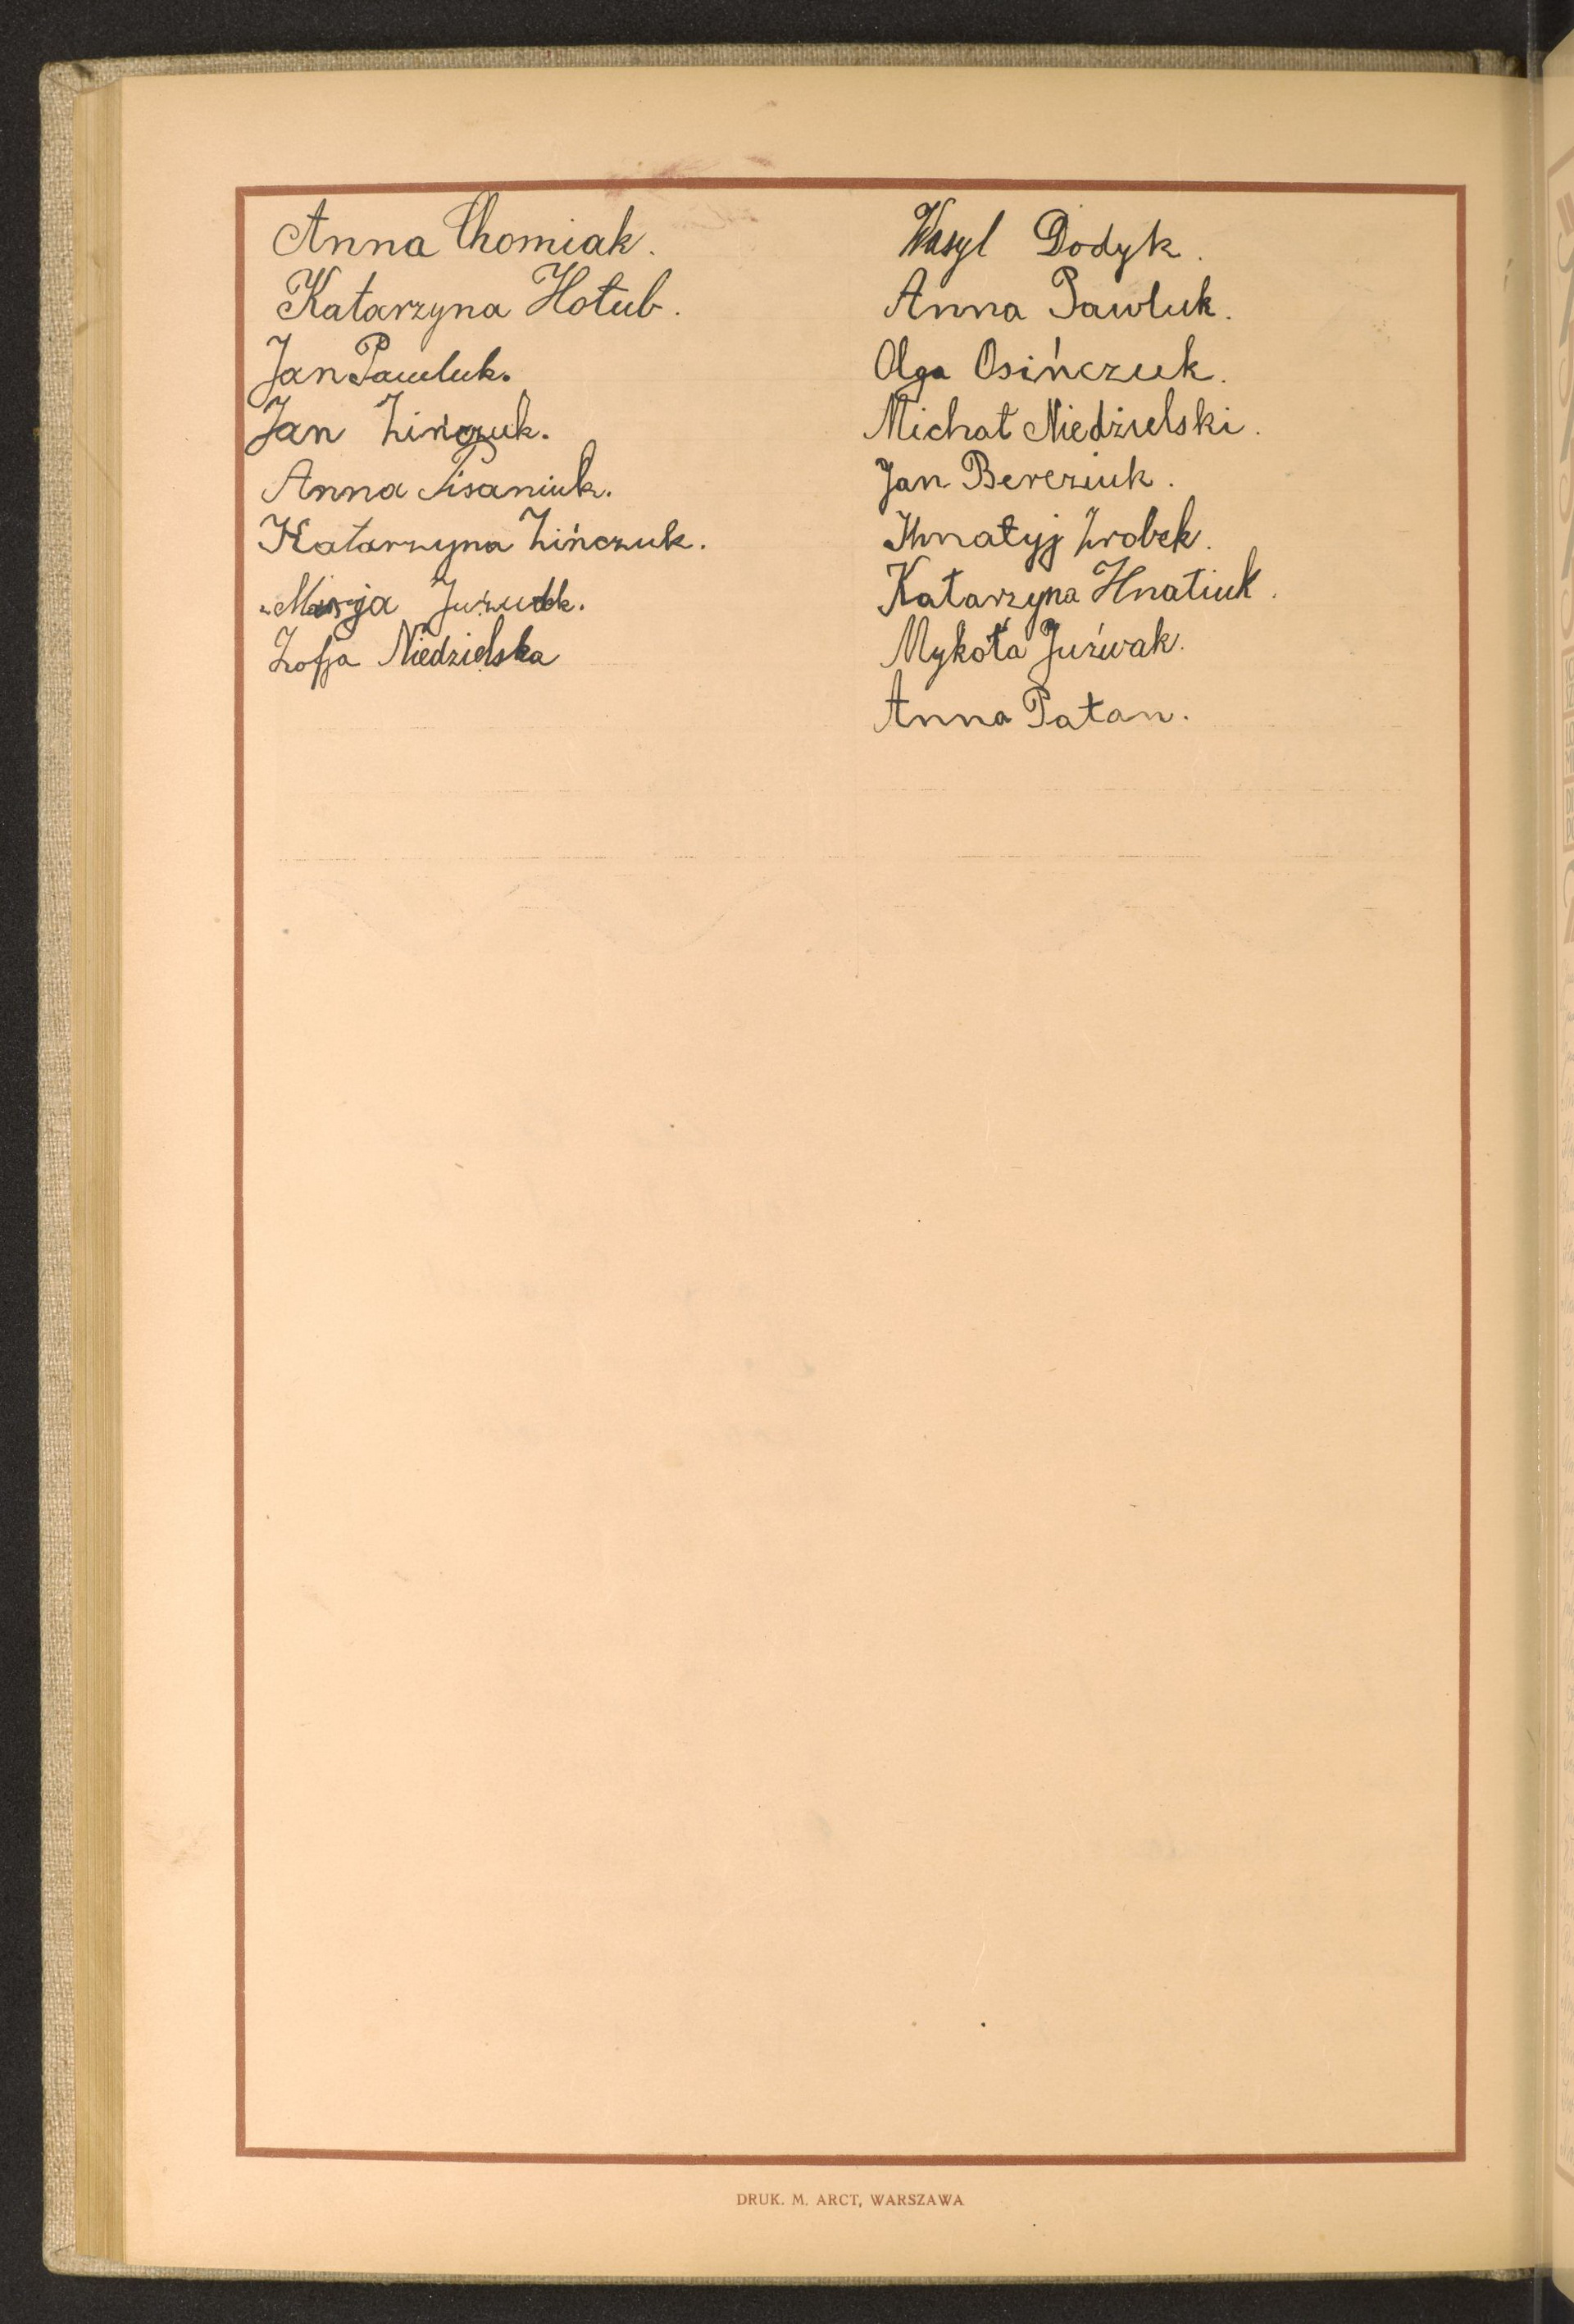 Anna Chomiak.
Katarzyna Hołub.
Jan Pawluk.
Jan Zińczuk.
Anna Pisaniuk.
Katarzyna Zińczuk.
Marja
Zofja Niedzielska
Wasyl Dodyk.
Anna Pawluk.
Olga Osińczuk.
Michał Niedzielski.
Jan Bereziuk.
Ihnatyj Zrobek.
Katarzyna Hnatiuk.
Mykoła Juźwak.
Anna Pałan.
DRUK. M. ARCT, WARSZAWA